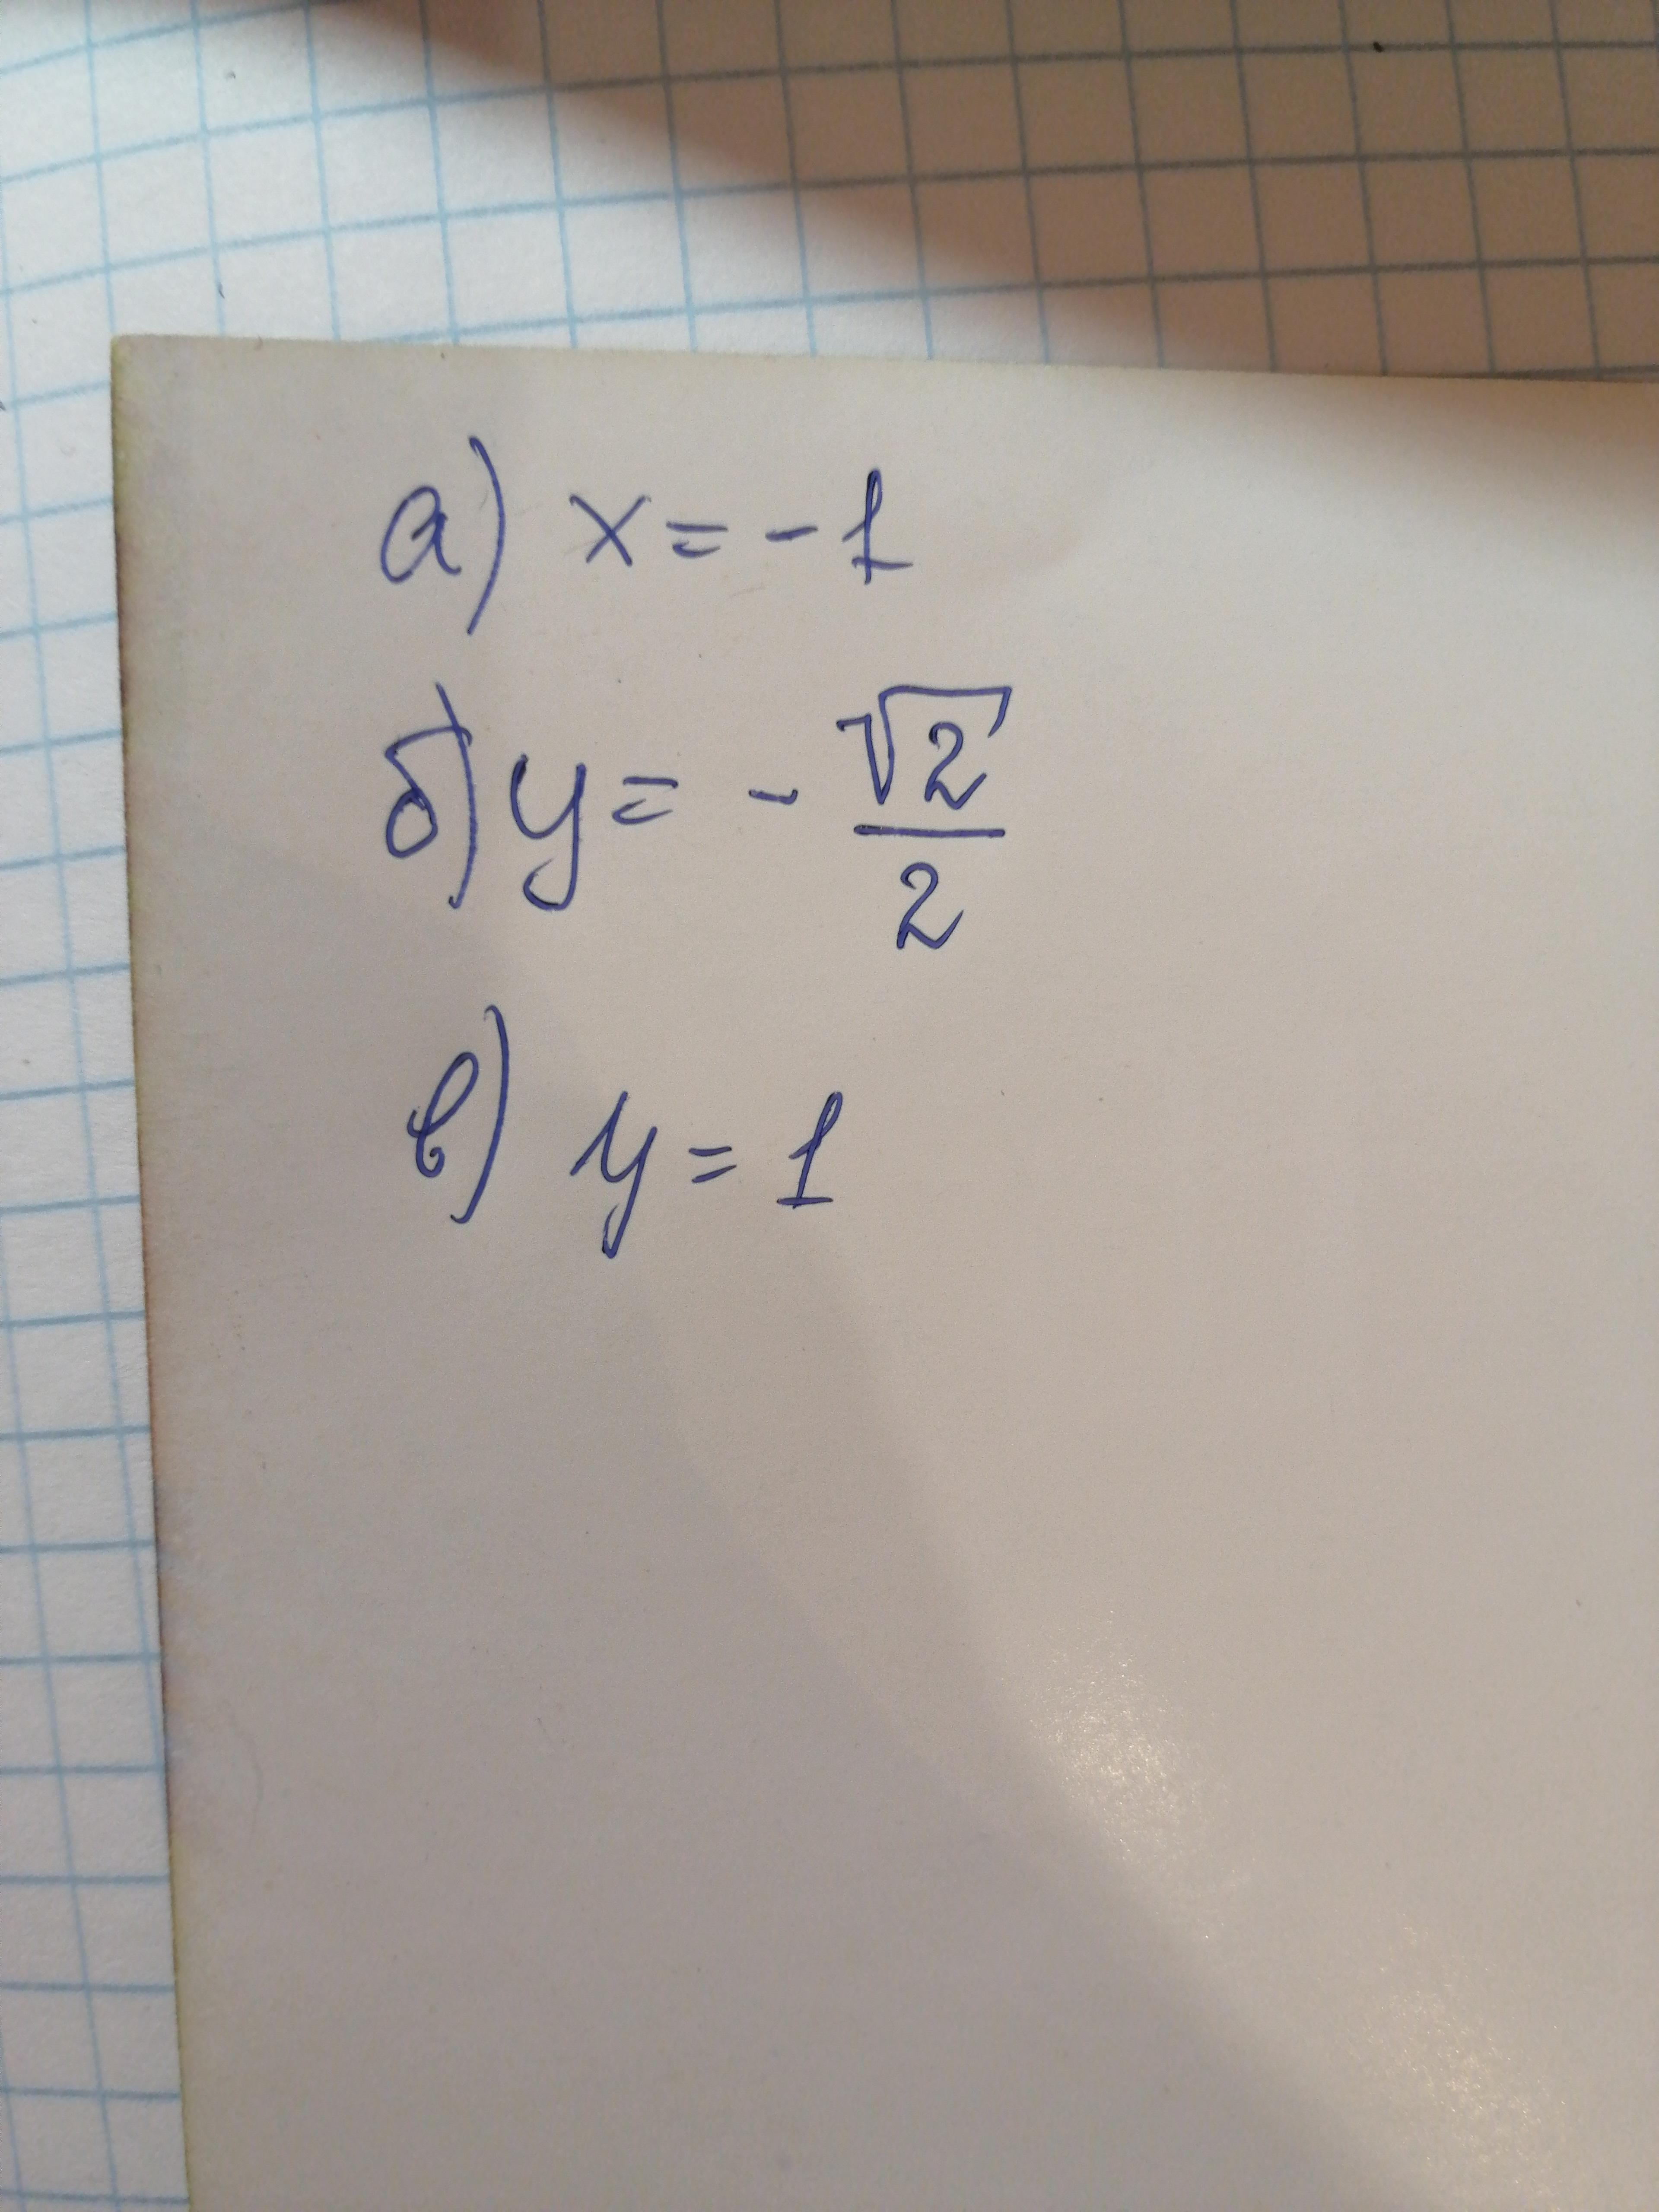 а) x = - 1
б) y = - √2/2
в) y = 1